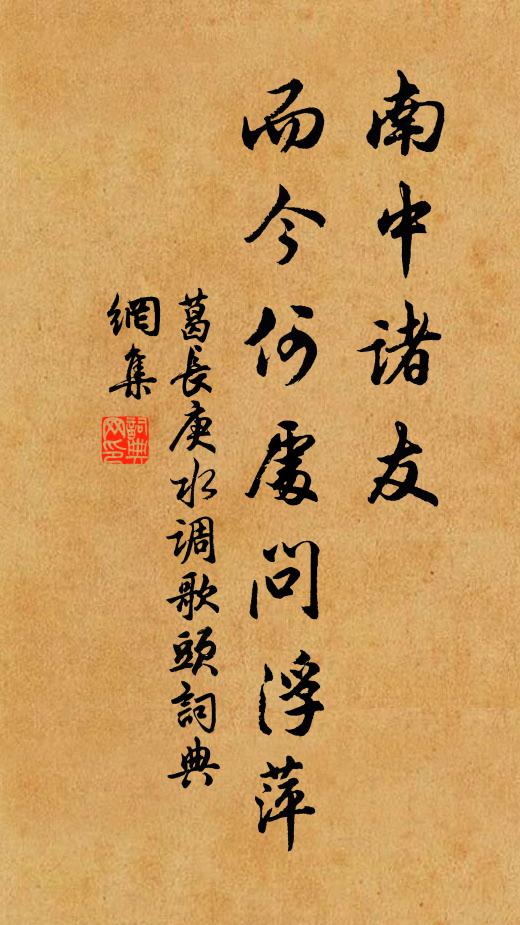 南中諸友
而今何處問浮萍
葛長庚水调歌頭詞典
網集
詞典
网印